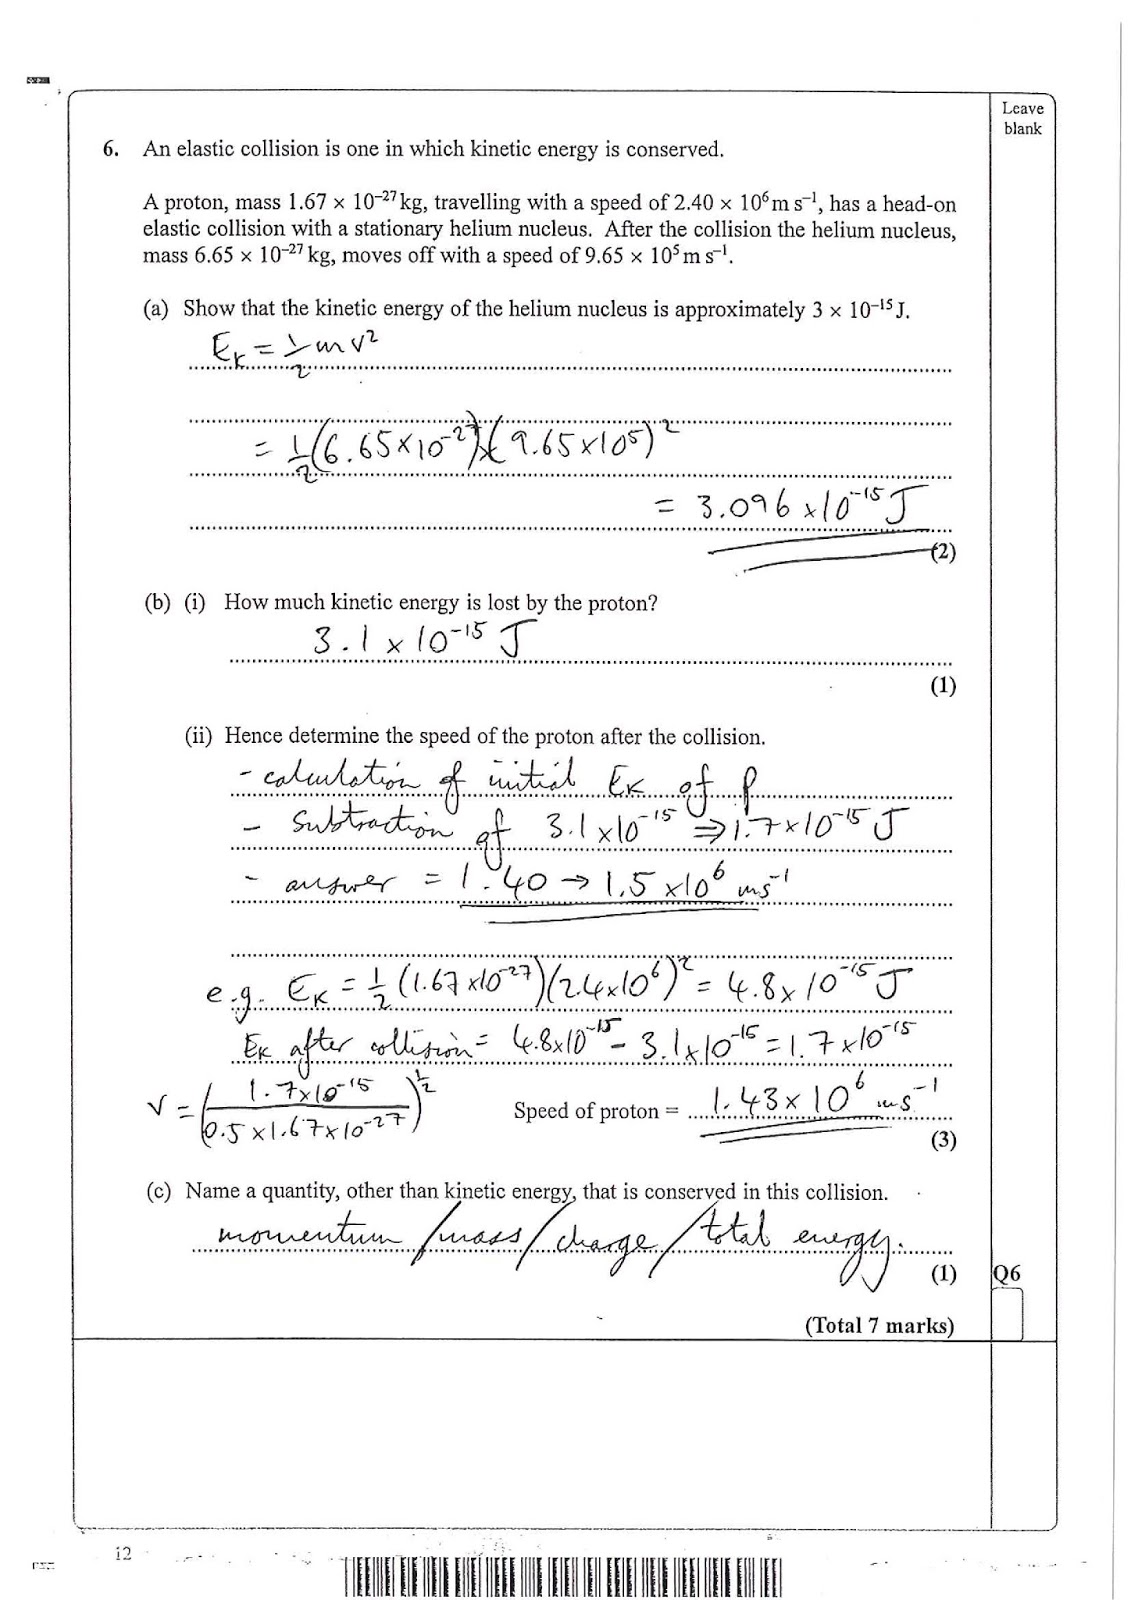 Leave
blank
6. An elastic collision is one in which kinetic energy is conserved.
A proton, mass 1.67 × 10⁻²⁷ kg, travelling with a speed of 2.40 × 10⁶ m s⁻¹, has a head-on
elastic collision with a stationary helium nucleus. After the collision the helium nucleus,
mass 6.65 × 10⁻²⁷ kg, moves off with a speed of 9.65 × 10⁵ m s⁻¹.
(a) Show that the kinetic energy of the helium nucleus is approximately 3 × 10⁻¹⁵ J.
E_K = ½ m v²
= ½ (6.65 × 10⁻²⁷) × (9.65 × 10⁵)²
= 3.096 × 10⁻¹⁵ J
(2)
(b) (i) How much kinetic energy is lost by the proton?
3.1 × 10⁻¹⁵ J
(1)
(ii) Hence determine the speed of the proton after the collision.
- calculation of initial E_K of p
- subtraction of 3.1 × 10⁻¹⁵ ⇒ 1.7 × 10⁻¹⁵ J
- answer = 1.40 → 1.5 × 10⁶ ms⁻¹
e.g. E_K = ½ (1.67 × 10⁻²⁷)(2.4 × 10⁶)² = 4.8 × 10⁻¹⁵ J
E_K after collision = 4.8 × 10⁻¹⁵ − 3.1 × 10⁻¹⁵ = 1.7 × 10⁻¹⁵
v = (1.7 × 10⁻¹⁵ / 0.5 × 1.67 × 10⁻²⁷)^½ Speed of proton = 1.43 × 10⁶ ms⁻¹
(3)
(c) Name a quantity, other than kinetic energy, that is conserved in this collision.
momentum / mass / charge / total energy.
(1)
Q6
(Total 7 marks)
12